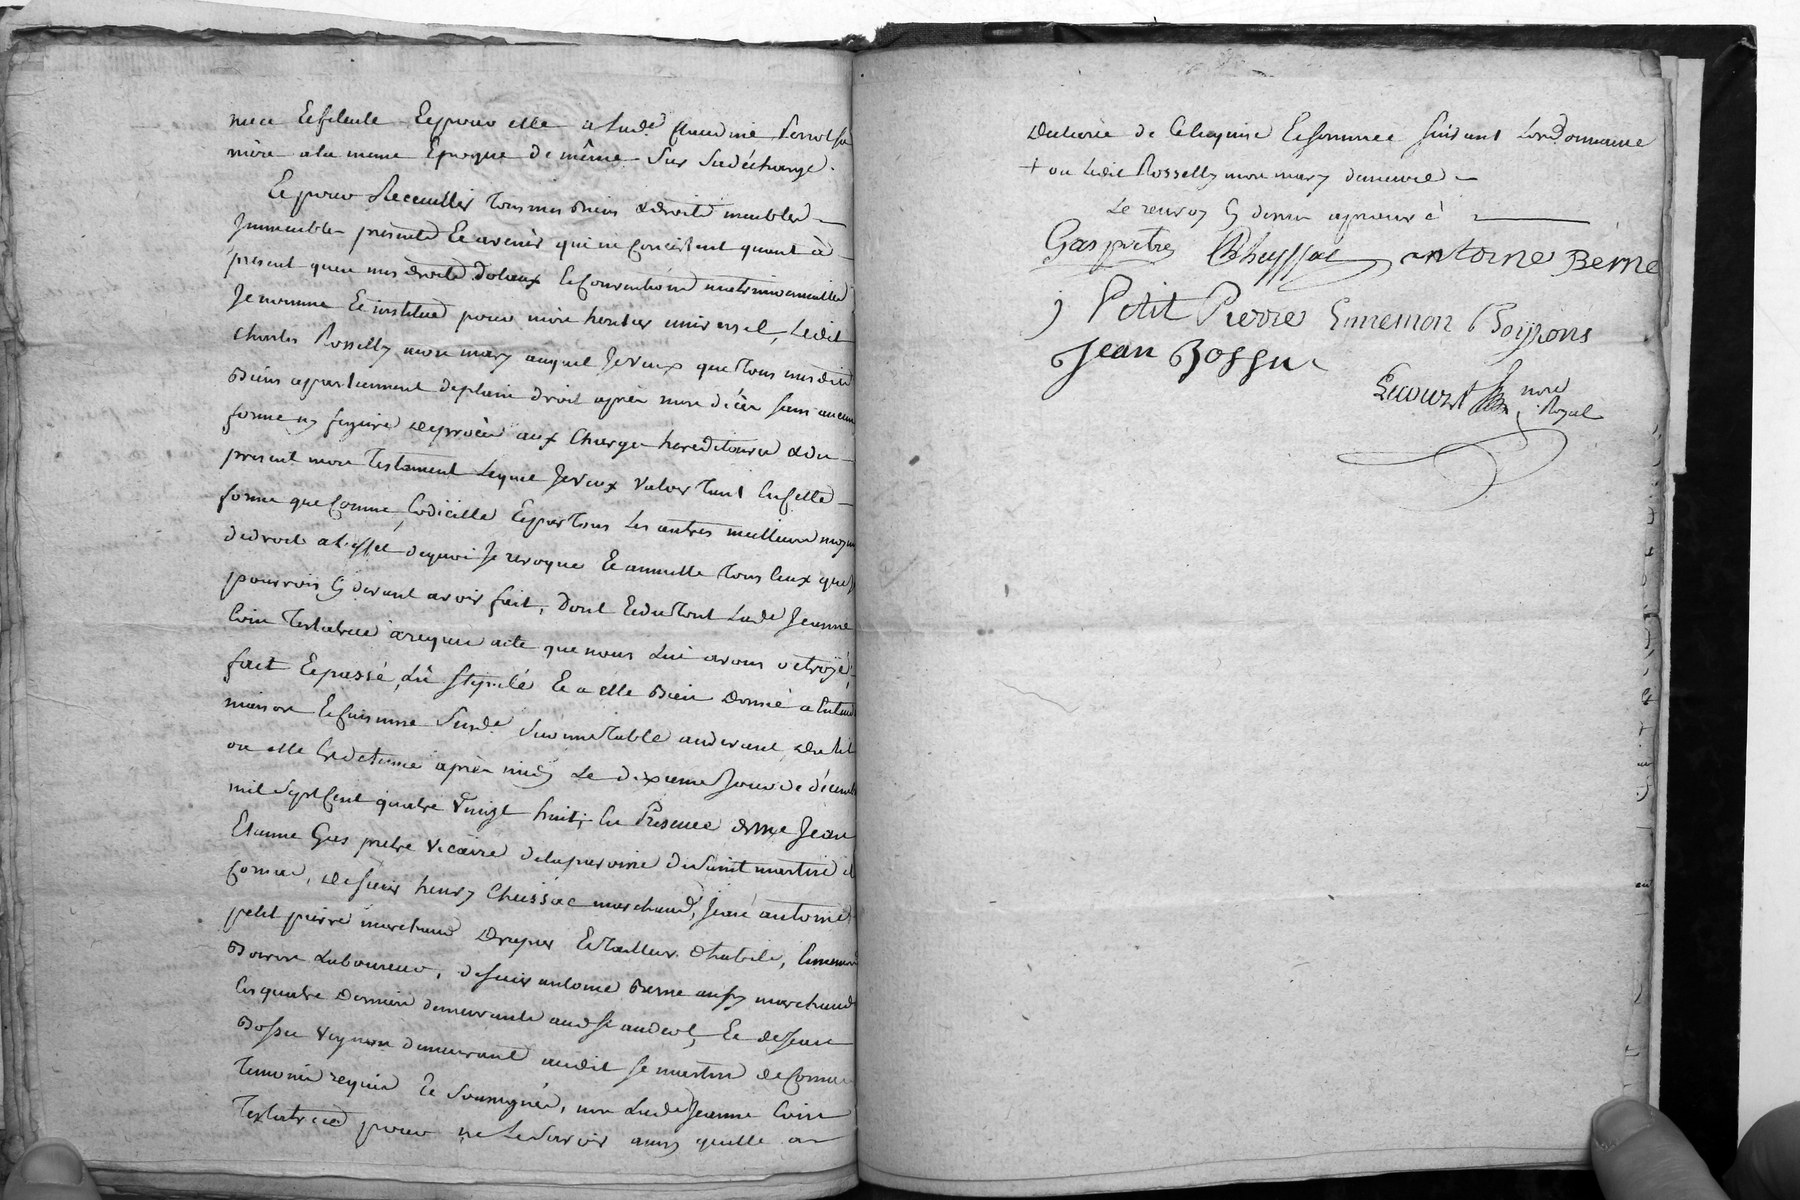 niece et filleule Et pour elle a lade Claudine Perrot sa
mère a la meme Epoque de même Sur sa décharge.
Et pour Recueillir tous mes Biens & droits meubles
Immeubles présents Et avenir qui ne Concistent quant à
présent quen mes droits dotaux & Conventions matrimonialles
Je nomme Et institue pour mon heritier universel, Ledit
Charles Rosselly mon mary auquel Je veux que tous mesdits
Biens appartiennent de plain droit après mon décès sans aucune
forme ny figure de procès aux Charges hereditaires & du
present mon Testament Lequel Je veux valoir tant En cette
forme que Comme Codicille Et par tous Les autres meilleurs moyens
de droit a l'effet de quoi Je revoque Et annulle tous Ceux que Je
pourrois Cy devant avoir fait, dont Et du tout Lade Jeanne
Coin Testatrice a requis acte que nous Lui avons octroyé,
fait Et passé, Lû stipulé Et a elle Bien donné a Entendre
maison Et Cuisine Susde Sur une Table au devant du lit
ou elle Est detenue après midy Le dixieme Jour de décembre
mil Sept Cent quatre vingt huit, En Presence de Mre Jean
Etienne Gas pretre vicaire de la paroisse de Saint martin de
Cornas, de sieur henry Cheissac marchand, Jean antoine
petit pierre marchand Drapier Et tailleur d'habits, Ennemond
Boiron Laboureur, de sieur antoine Berne aussy marchand
Les quatre Derniers demeurants aud St andeol, Et de Jean
Bossu vigneron demeurant audit St martin de Cornas
Temoins requis Et Soussignés, non Lade Jeanne Coin
Testatrice pour ne Le Savoir ainsy quelle a
declaré de Ce Enquise Et Sommée Suivant Lordonnance
+ ou Ledit Rosselly mon mary demeure
Le renvoy Cy dessus approuvé
Gas prêtre Cheyssac antoine Berne
j Petit Pierre Ennemon Boyrons
Jean Bossu
Lecourt nore
Royal